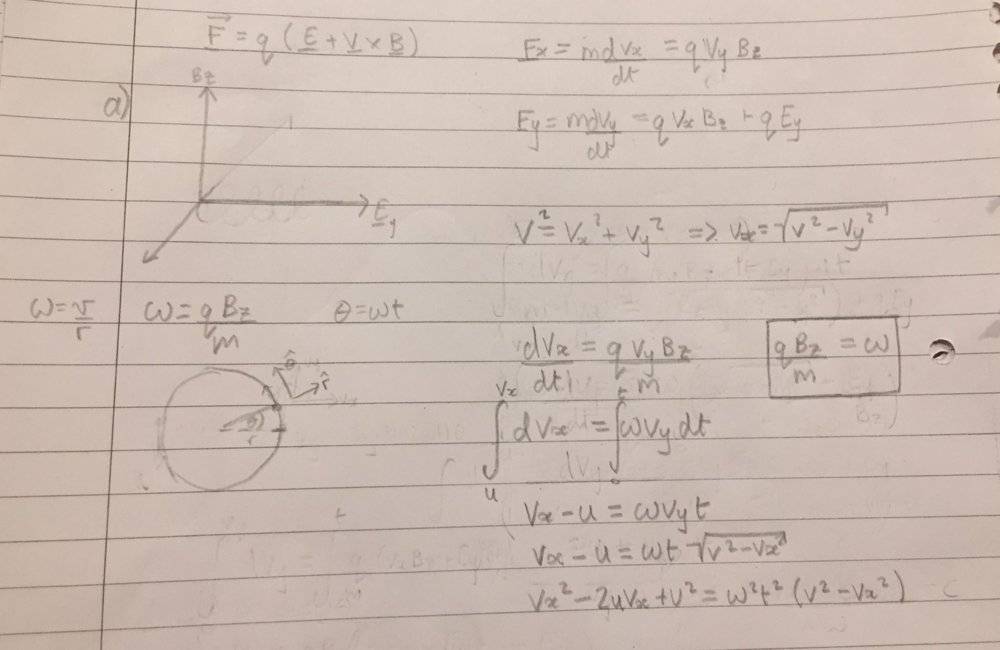 F⃗ = q (E + V × B)
Fx = mdvx/dt = q Vy Bz
Bz
a)
Fy = mdvy/dt = q Vx Bz + q Ey
Ey
V² = Vx² + Vy² => Vx = √(v² - Vy²)
ω = v/r
ω = q Bz/m
θ = ωt
dVx/dt = q Vy Bz/m
q Bz/m = ω
θ̂
r̂
∫ᵤ^Vx dVx = ∫₀^t ωVy dt
Vx - u = ωVyt
Vx - u = ωt √(v² - Vx²)
Vx² - 2uVx + U² = ω²t² (v² - Vx²)